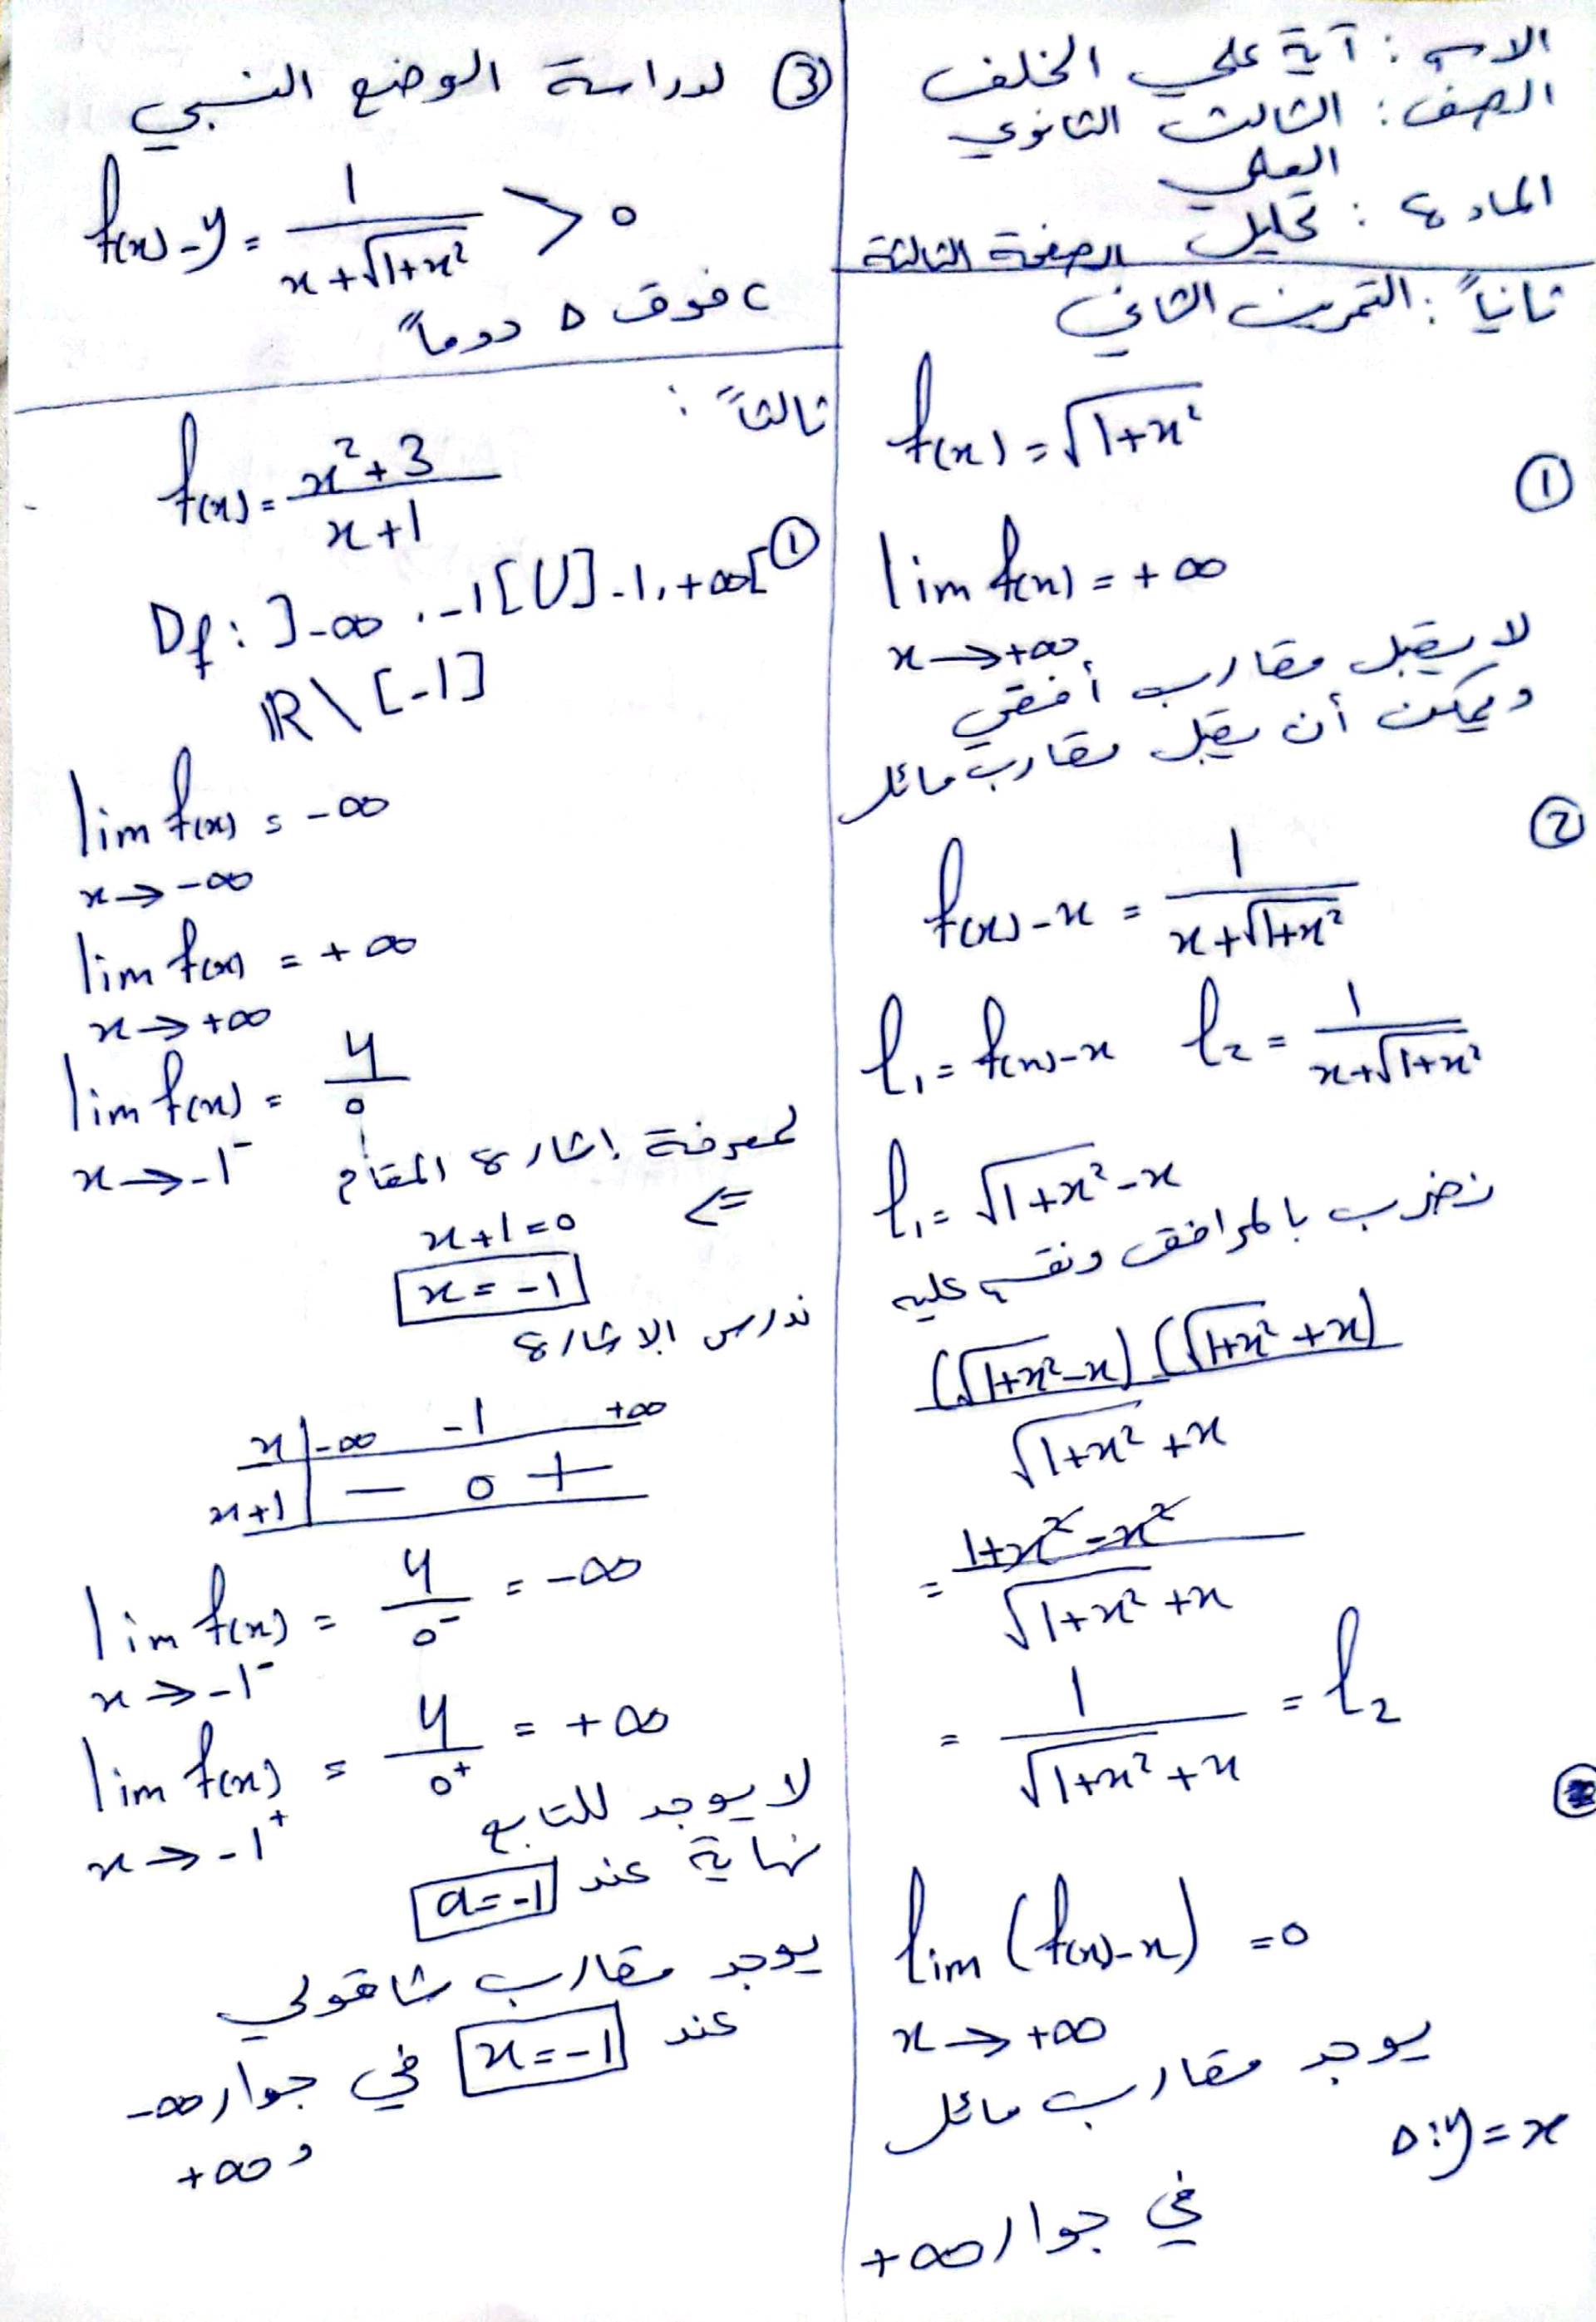 الاسم : آية علي الخلف
الصف : الثالث الثانوي
العلمي
المادة : تحليل الصفحة الثالثة
ثانياً : التمرين الثاني
f(x) = √(1+x²)
①
lim f(x) = +∞
x → +∞
لا يقبل مقارب أفقي
ويمكن أن يقبل مقارب مائل
②
f(x) - x = 1/(x+√(1+x²))
l₁ = f(x) - x l₂ = 1/(x+√(1+x²))
l₁ = √(1+x²) - x
نضرب بالمرافق ونقسم عليه
(√(1+x²) - x)(√(1+x²) + x)/(√(1+x²) + x)
= (1+x² - x²)/(√(1+x²) + x)
= 1/(√(1+x²) + x) = l₂
lim (f(x) - x) = 0
x → +∞
يوجد مقارب مائل
Δ: y = x
في جوار +∞
③ لدراسة الوضع النسبي
f(x) - y = 1/(x+√(1+x²)) > 0
C فوق Δ دوماً
ثالثاً :
f(x) = (x²+3)/(x+1)
①
Df : ]-∞ , -1[ U ]-1, +∞[
ℝ\[-1]
lim f(x) = -∞
x → -∞
lim f(x) = +∞
x → +∞
lim f(x) = 4/0
x → -1⁻
لمعرفة إشارة المقام
⇐
x+1 = 0
x = -1
ندرس الإشارة
x | -∞ -1 +∞
x+1 | - 0 +
lim f(x) = 4/0⁻ = -∞
x → -1⁻
lim f(x) = 4/0⁺ = +∞
x → -1⁺
لا يوجد للتابع
نهاية عند a = -1
يوجد مقارب شاقولي
عند x = -1 في جوار -∞
و +∞